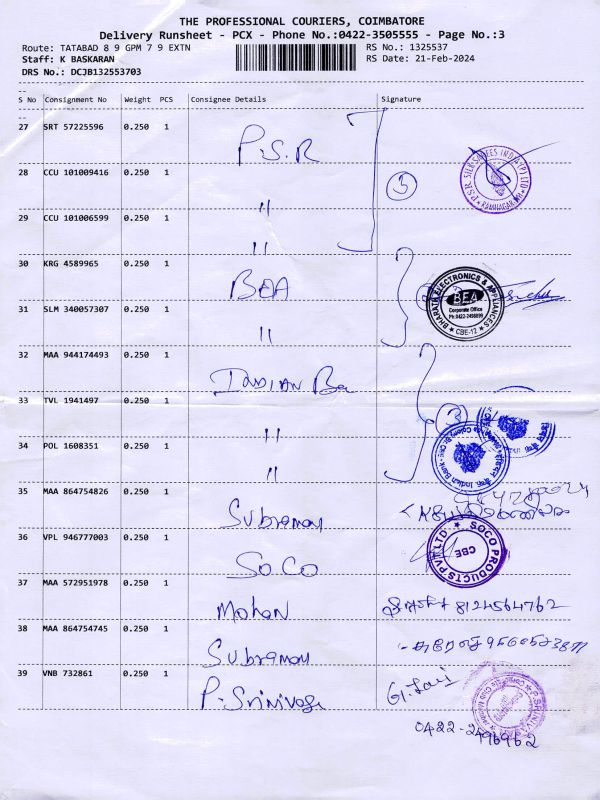 THE PROFESSIONAL COURIERS, COIMBATORE
Delivery Runsheet - PCX - Phone No.:0422-3505555 - Page No.:3
Route: TATABAD 8 9 GPM 7 9 EXTN
RS No.: 1325537
Staff: K BASKARAN
RS Date: 21-Feb-2024
DRS No.: DCJB132553703
S No Consignment No Weight PCS Consignee Details Signature
27 SRT 57225596 0.250 1 P.S.R
28 CCU 101009416 0.250 1 "
3
P.S.R SILK SAREES INDIA (P) LTD
RAMNAGAR
29 CCU 101006599 0.250 1 "
30 KRG 4589965 0.250 1 BEA
BHARATH ELECTRONICS & APPLIANCES
BEA
Corporate Office
CBE-12
31 SLM 340057307 0.250 1 "
32 MAA 944174493 0.250 1 INDIAN Ba
33 TVL 1941497 0.250 1 "
3
34 POL 1608351 0.250 1 "
Indian Bank
35 MAA 864754826 0.250 1 Subramay
36 VPL 946777003 0.250 1 SoCo
SOCO PRODUCTS PVT LTD
CBE
37 MAA 572951978 0.250 1 Mohan
8124564762
38 MAA 864754745 0.250 1 Subramay
39 VNB 732861 0.250 1 P. Srinivasa
P. SRINIVA
0422-2496962